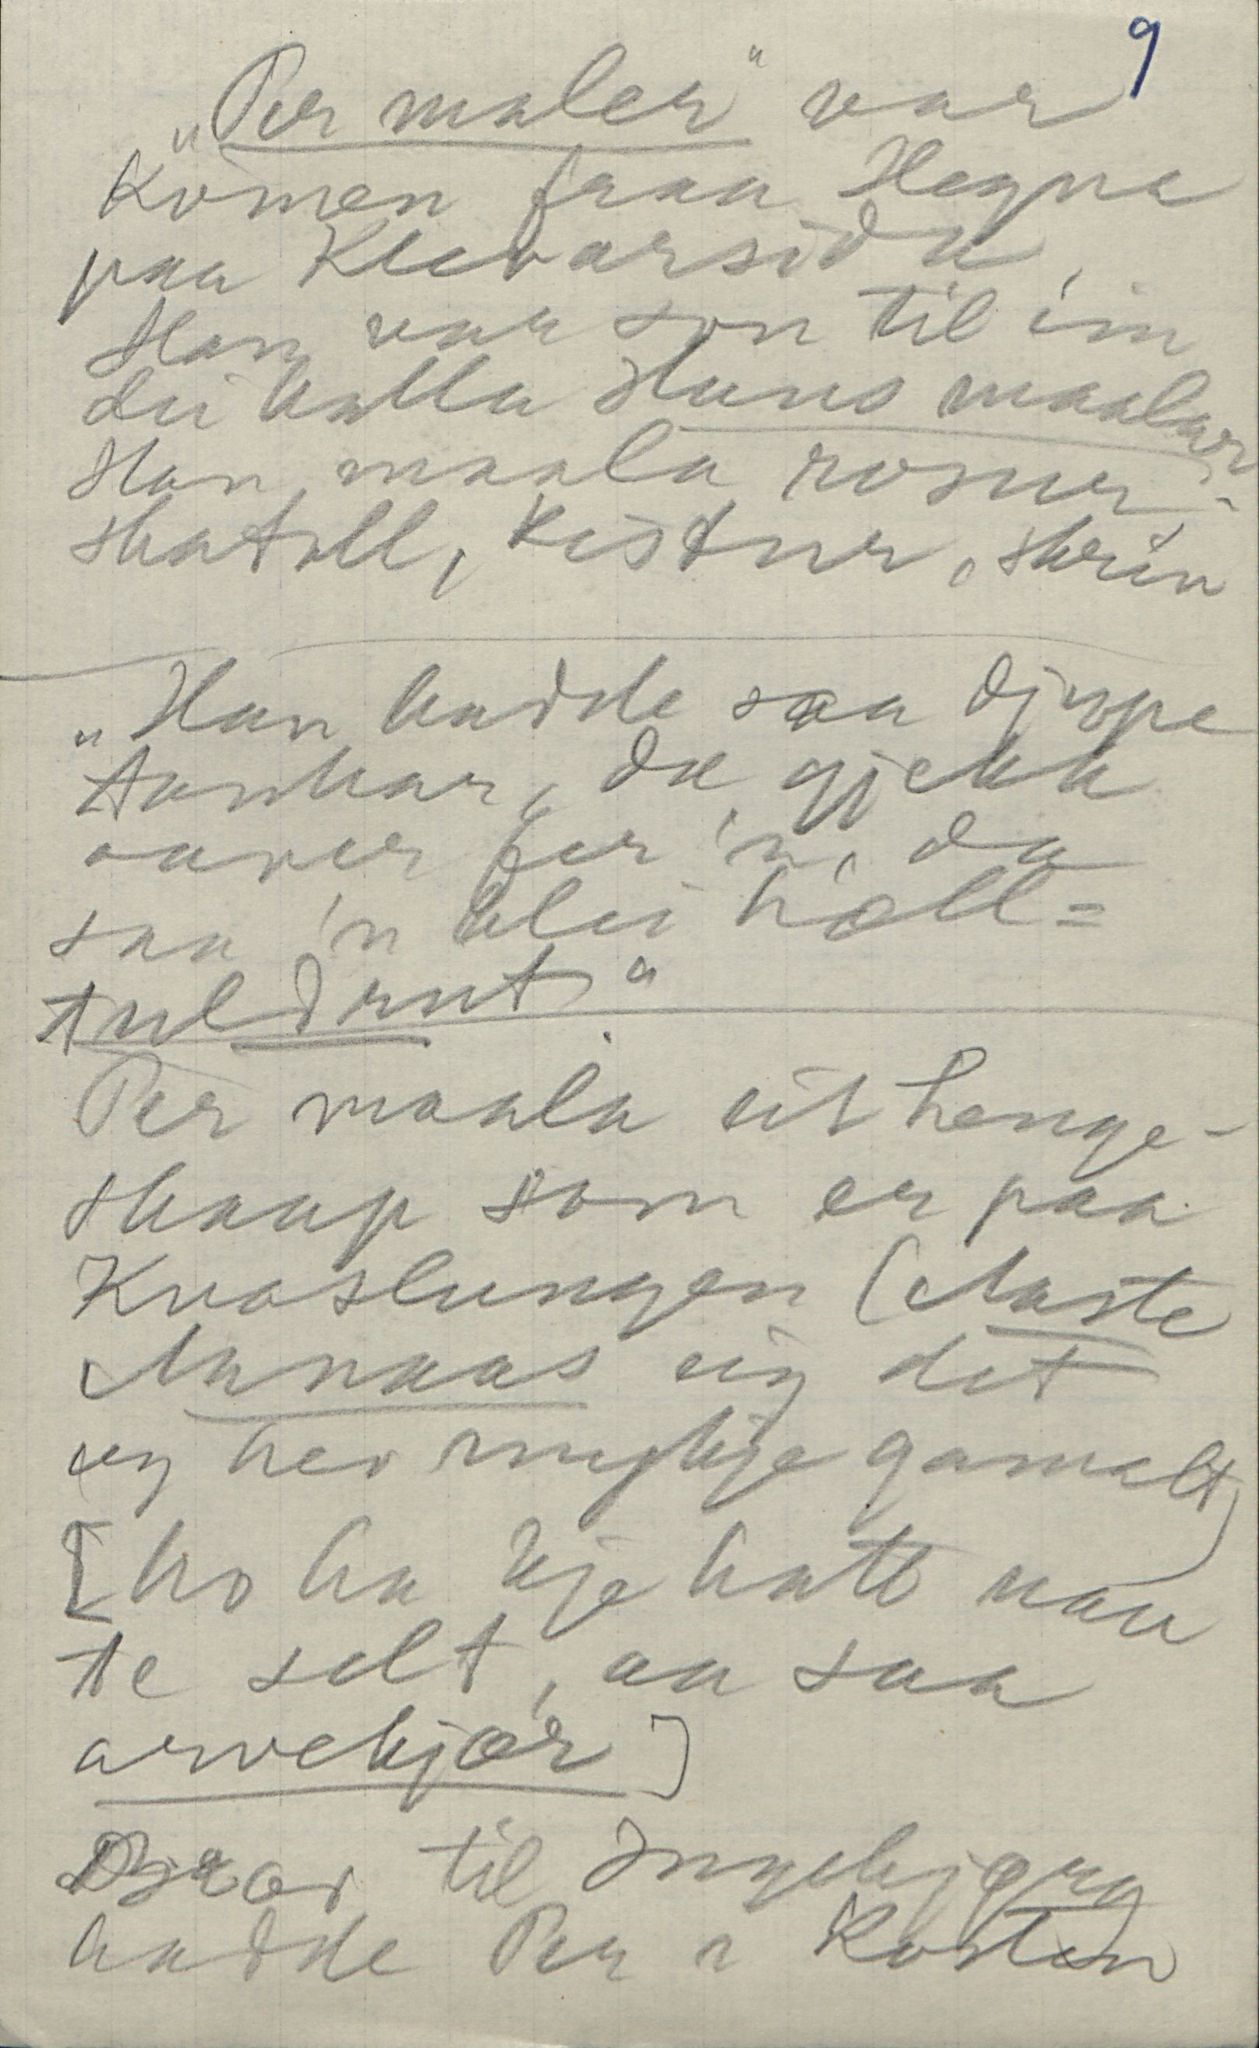 9
„Per maler" var
komen fraa Hegna
paa Klevarsida,
Han var son til ein
dei kalla Hans maalar
Han maala rosur,-
skatoll, kistur, skrin
„Han hadde saa djupe
tankar, dæ gjekk
aaver fer 'n, da
saa 'n blei hall=
tuldrut."
Per maala eit henge-
skaap som er paa
Kvaslungen (Aaste
Aanaas eig det
og hev mykje gamalt)
[ho ha kje hatt nau
te selt, aa saa
arvekjær]
til Ingebjørg
hadde Per i Kosten